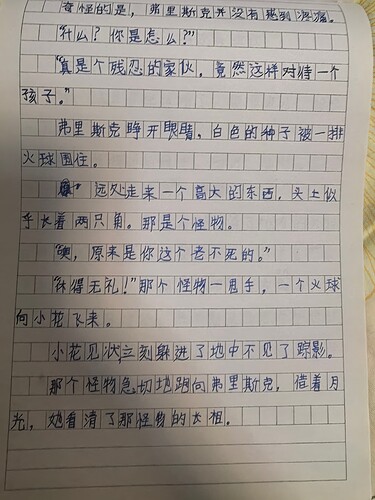 奇怪的是，弗里斯克并没有感到疼痛。
“什么？你是怎么？”
“真是个残忍的家伙，竟然这样对待一个
孩子。”
弗里斯克睁开眼睛，白色的种子被一排
火球围住。
远处走来一个高大的东西，头上似
乎长着两只角。那是个怪物。
“噢，原来是你这个老不死的。”
“休得无礼！”那个怪物一甩手，一个火球
向小花飞来。
小花见状立刻躲进了地中不见了踪影。
那个怪物急切地跑向弗里斯克，借着月
光，她看清了那怪物的长相。